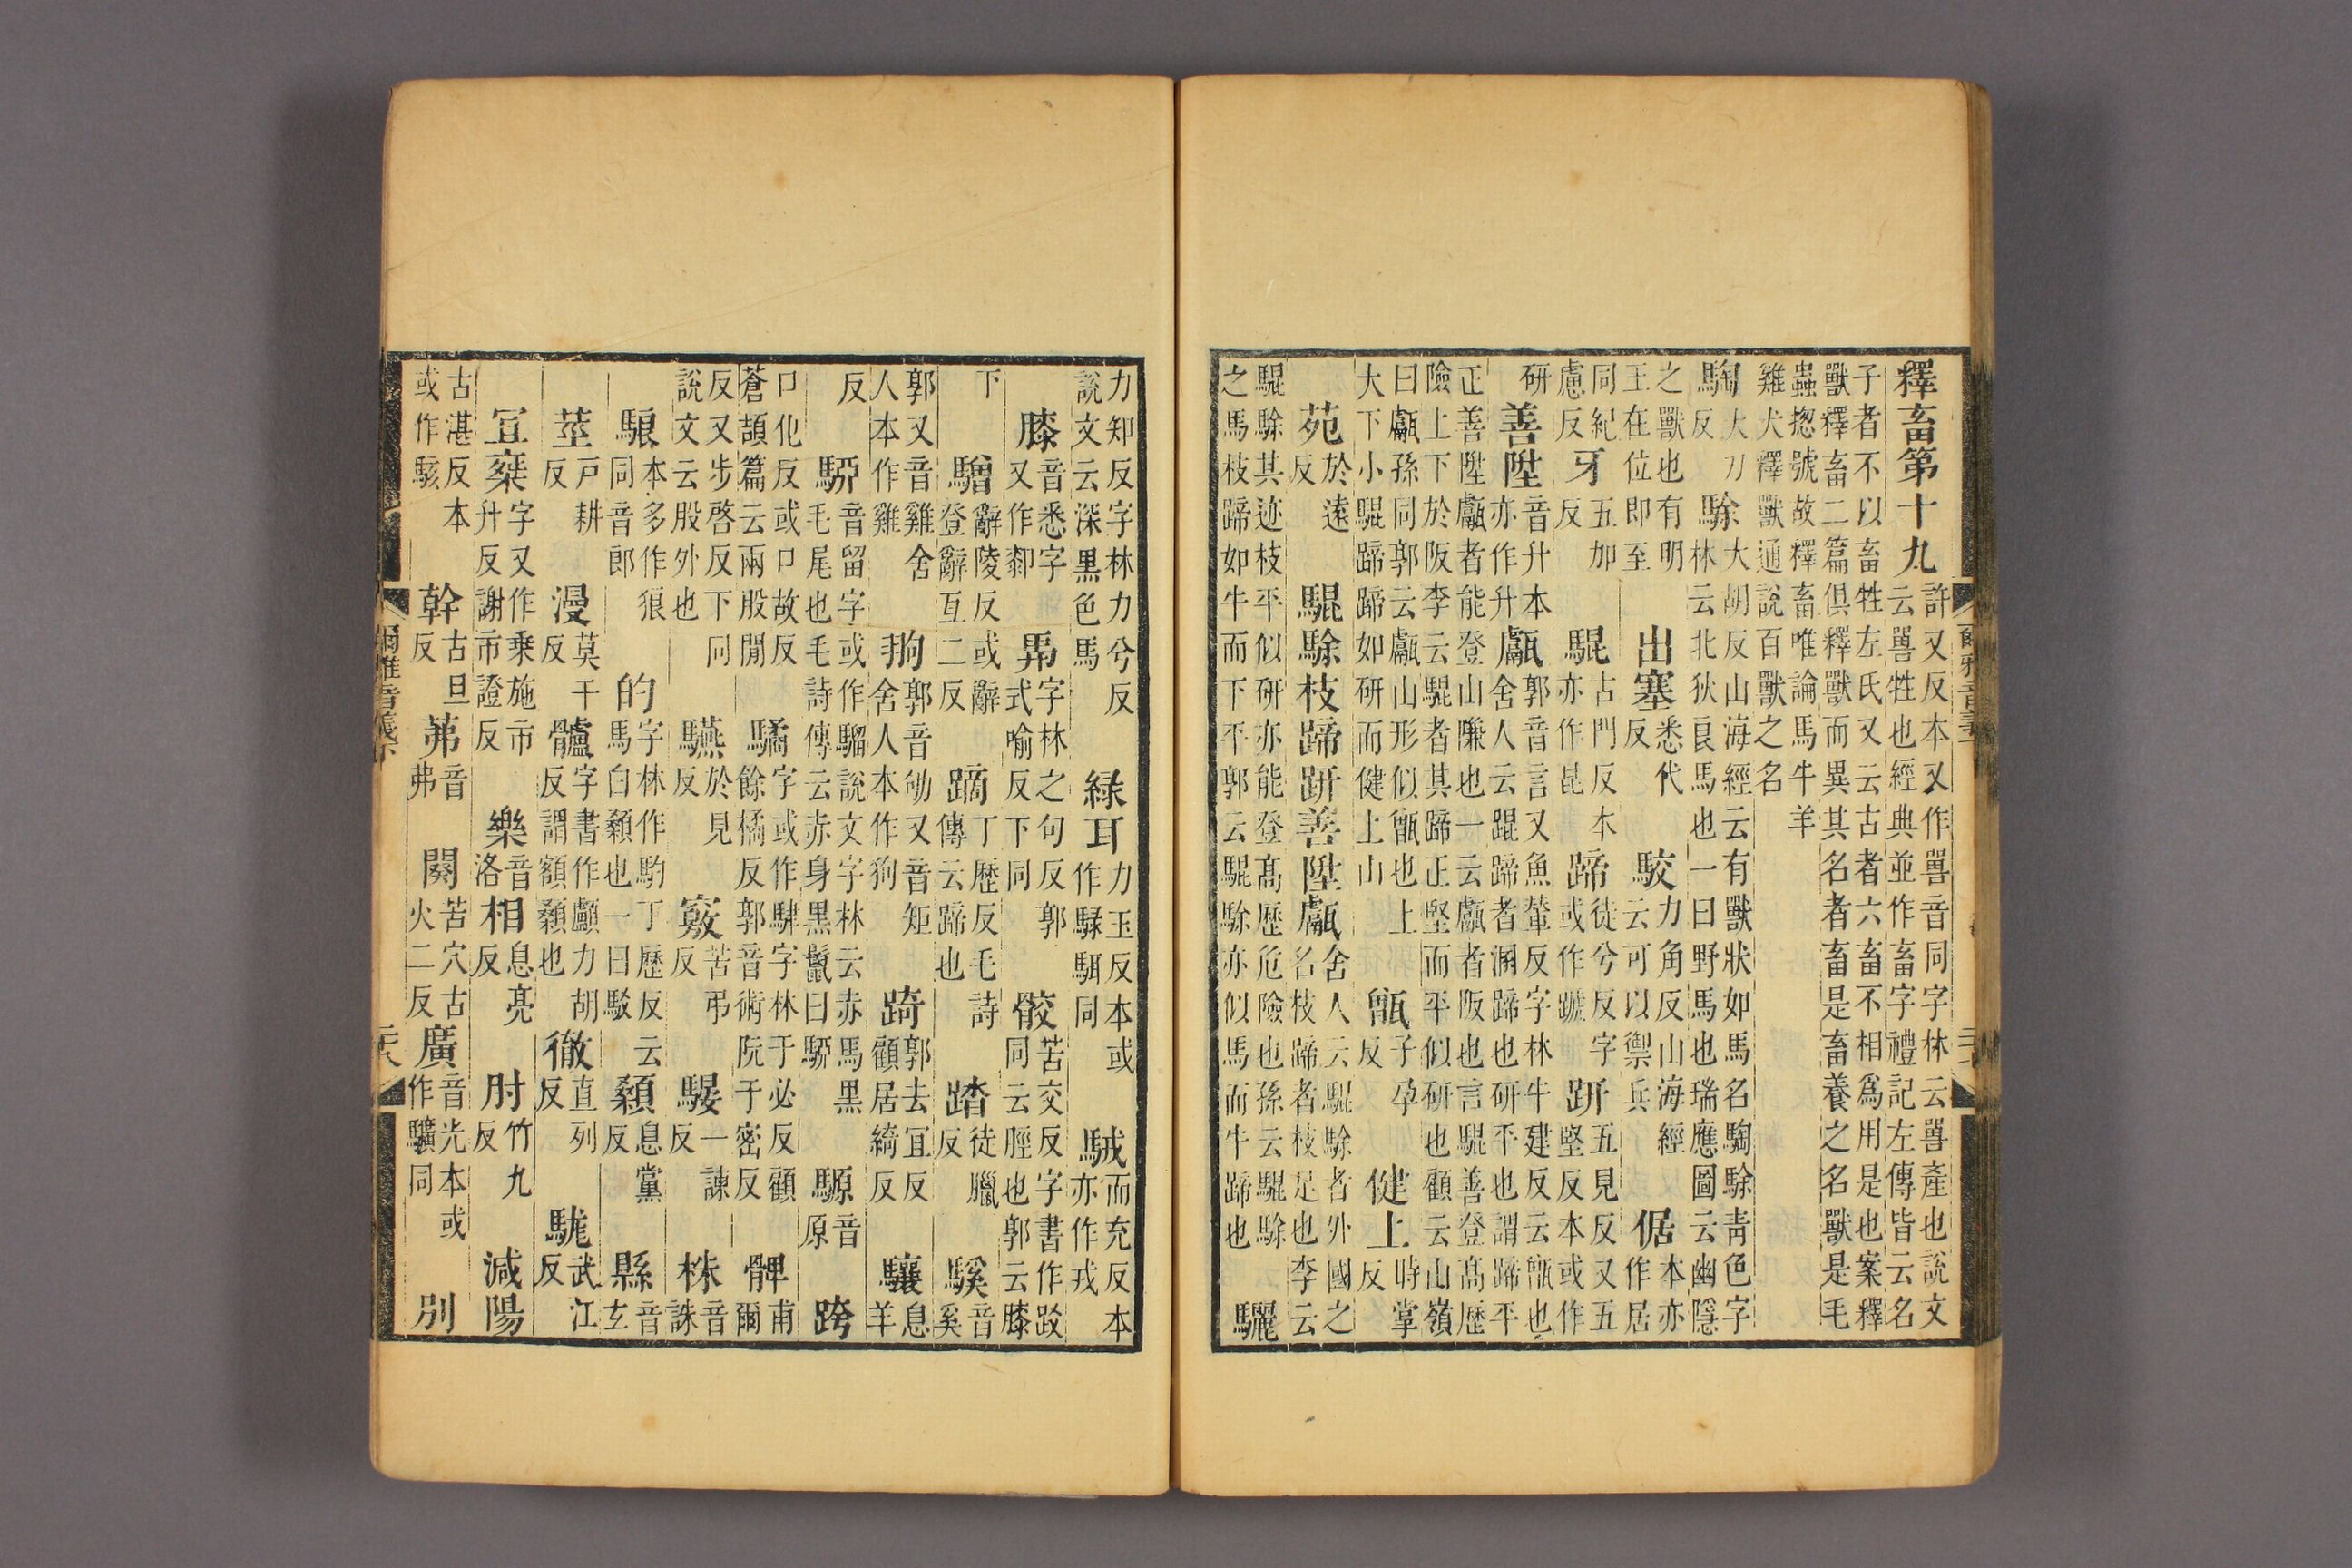 釋畜第十九許又反本又作嘼音同字林云嘼產也說文云嘼牲也經典並作畜字禮記左傳皆云名
子者不以畜牲左氏又云古者六畜不相爲用是也案釋獸釋畜二篇俱釋獸而異其名者畜是畜養之名獸是毛
蟲揔號故釋畜唯論馬牛羊雞犬釋獸通說百獸之名
騊大刀反駼大胡反山海經云有獸狀如馬名騊駼青色字林云北狄良馬也一曰野馬也瑞應圖云幽隱
之獸也有明王在位即至出塞悉代反駮力角反山海經云可以禦兵倨本亦作居
同紀慮反牙五加反騉占門反本亦作昆蹄徒兮反字或作蹏趼五見反又五堅反本或作
研善陞音升本亦作升甗郭音言又魚輦反字林牛建反云甑也舍人云騉蹄者溷蹄也研平也謂蹄平
正善陞甗者能登山隒也一云甗者阪也言騉善登高歷險上下於阪李云騉者其蹄正堅而平似研也顧云山嶺
曰甗孫同郭云甗山形似甑也上大下小騉蹄蹄如研而健上山甑子孕反健上時掌反
苑於遠反騉駼枝蹄趼善陞甗舍人云騉駼者外國之名枝蹄者枝足也李云
騉駼其迹枝平似研亦能登高歷危險也孫云騉駼之馬枝蹄如牛而下平郭云騉駼亦似馬而牛蹄也驪
力知反字林力兮反說文云深黑色馬緑耳力玉反本或作騄駬同駥而充反本亦作戎
膝音悉字又作䣛馵字林之句反郭式喻反下同骹苦交反字書作跤同云脛也郭云膝
下驓辭陵反或辭登辭互二反蹢丁歷反毛詩傳云蹄也踏徒臘反騱音奚
郭又音雞舍人本作雞狗郭音劬又音矩舍人本作狗踦郭去宜反顧居綺反驤息羊
反駵音留字或作騮說文字林云赤馬黑毛尾也毛詩傳云赤身黑鬣曰駵騵音原跨
口化反或口故反蒼頡篇云兩股間驈字或作䮇字林于必反顧餘橘反郭音術阮于密反髀甫爾
反又步啓反下同說文云股外也驠於見反竅苦弔反騴一諫反株音誅
駺本多作狼同音郎的字林作馰丁歷反云馬白顙也一曰駮顙息黨反縣音玄
莖戶耕反漫莫干反髗字書作顱力胡反謂額顙也徹直列反駹武江反
宜椉字又作乗施市升反謝市證反樂音洛相息亮反肘竹九反減陽
古湛反本或作駭幹古旦反茀音弗闋苦穴古火二反廣音光本或作驥同別
爾雅音義下